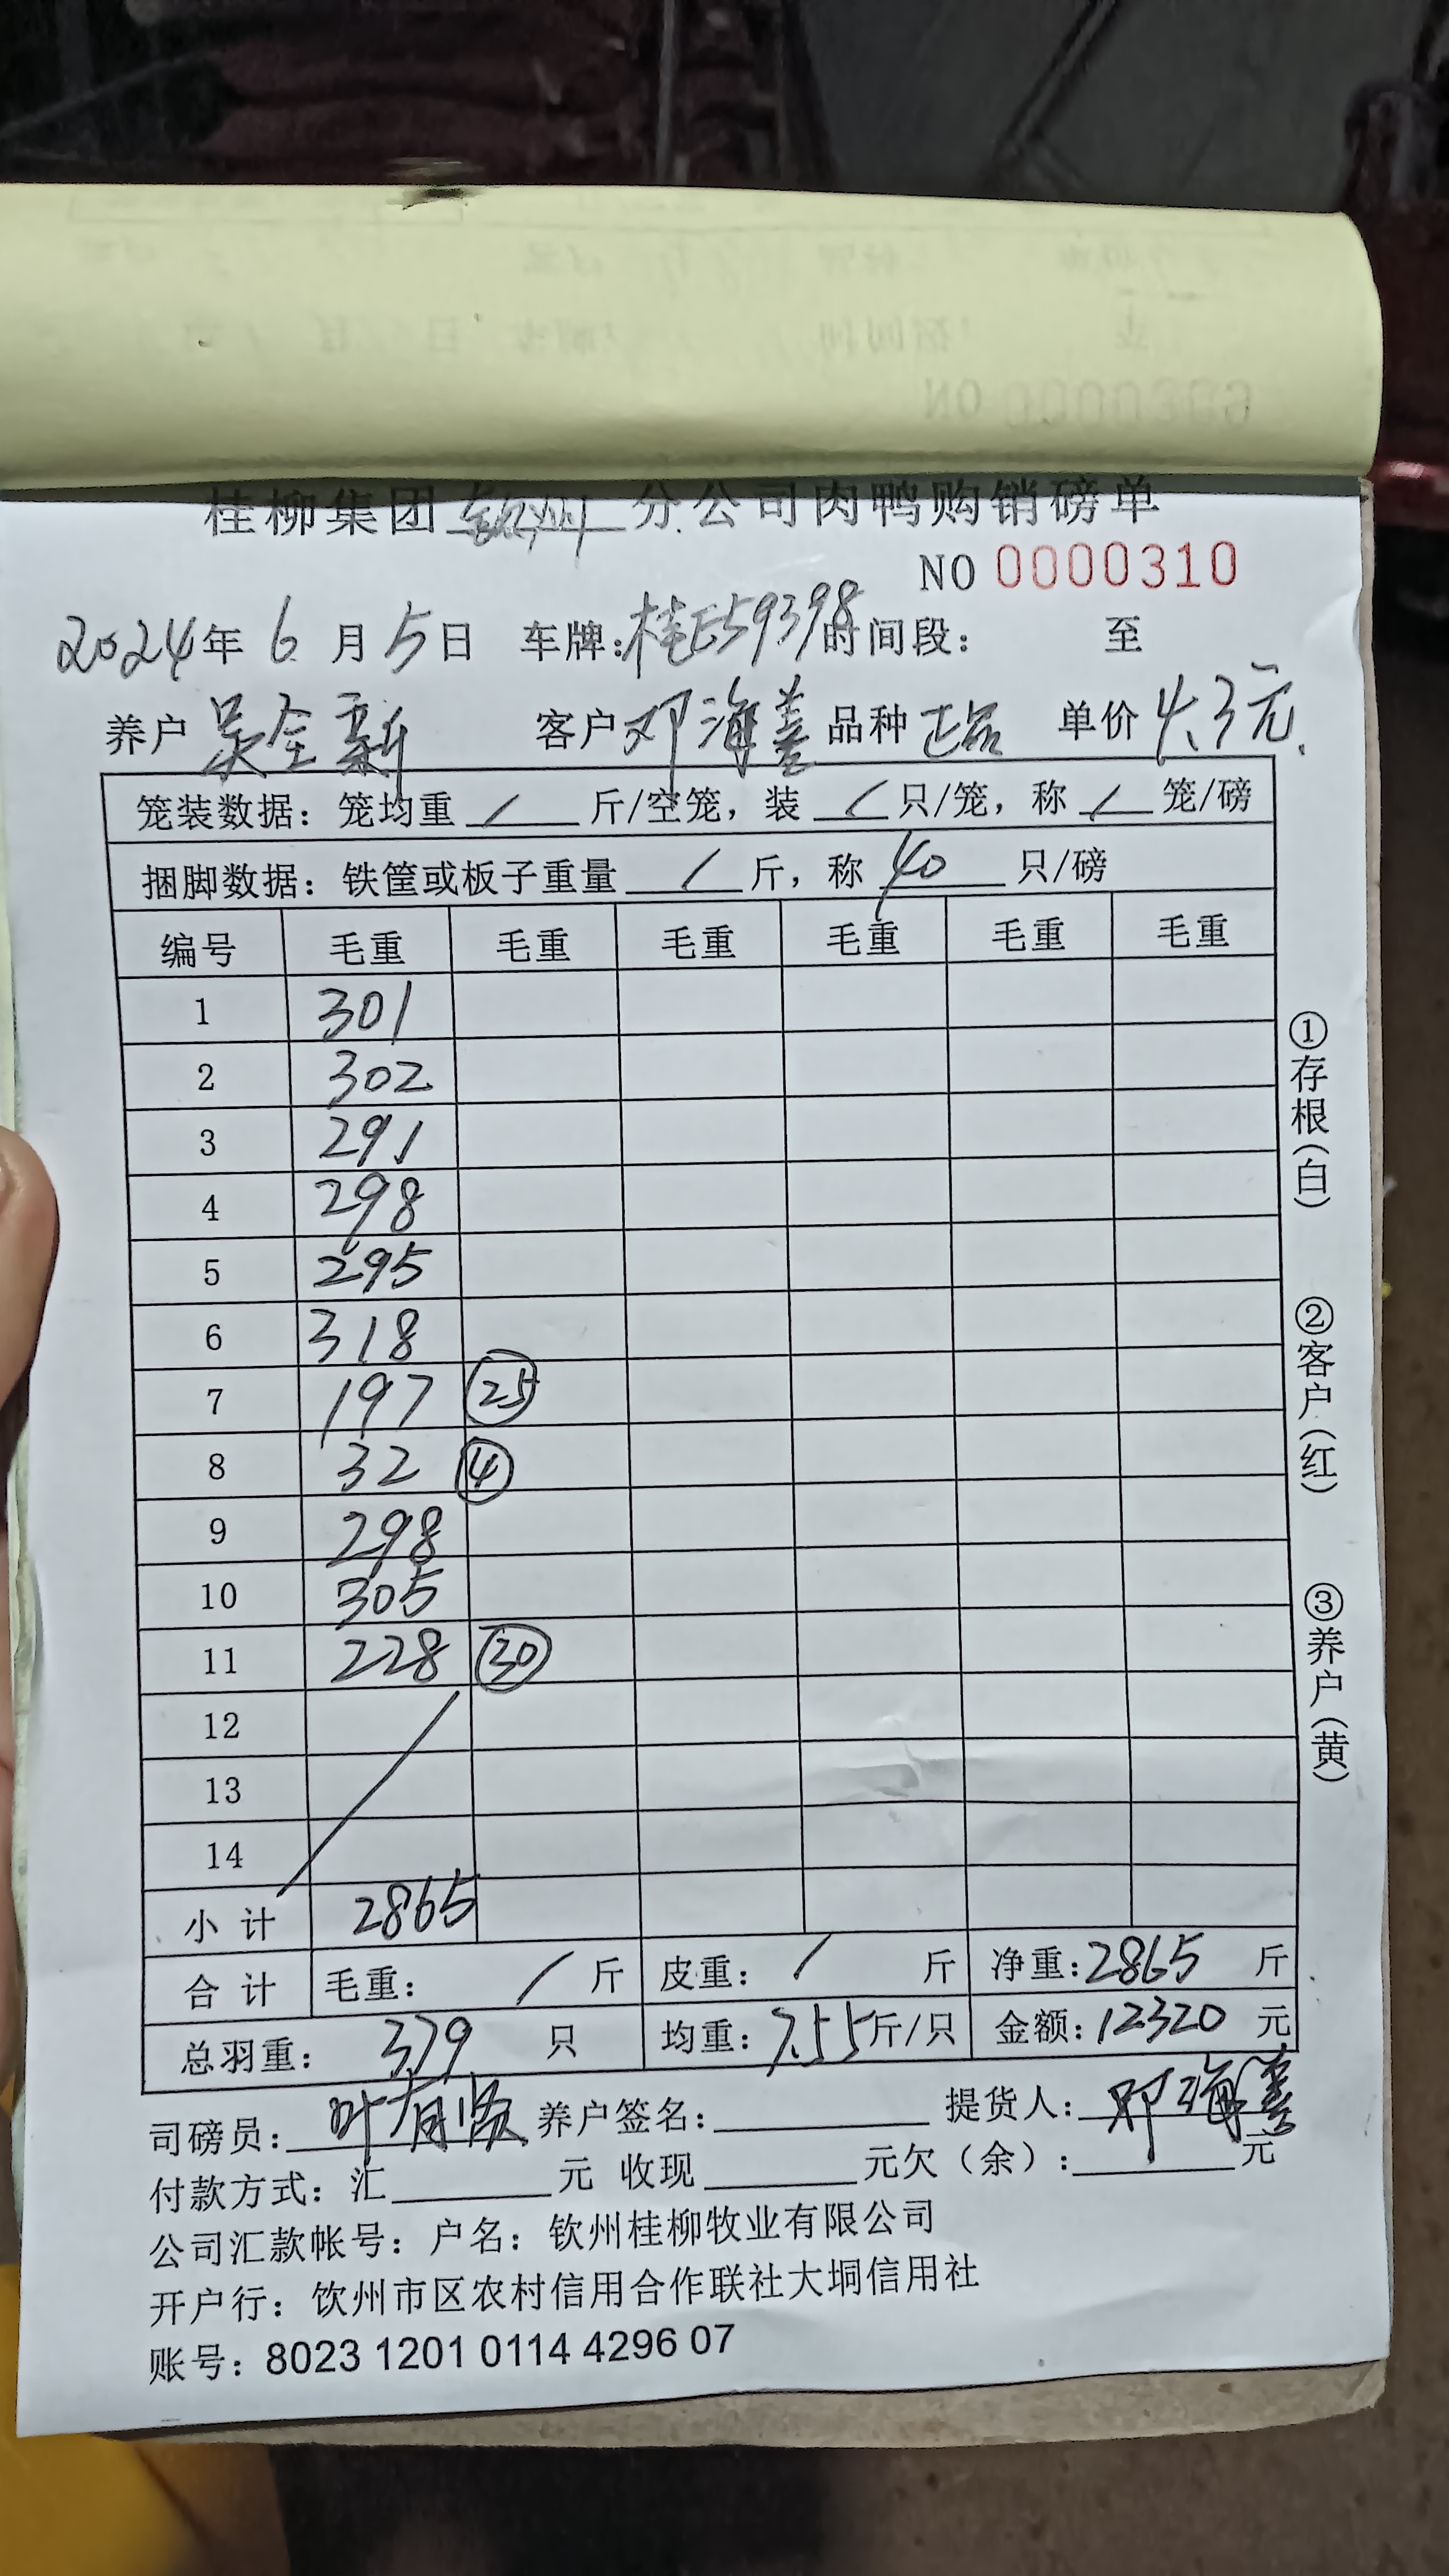 桂柳集团钦州分公司肉鸭购销磅单
NO 0000310
2024年 6 月 5 日 车牌:桂E59398时间段: 至
养户 吴全新 客户 邓海善 品种 正品 单价 4.3元.
笼装数据: 笼均重 / 斤/空笼, 装 / 只/笼, 称 / 笼/磅
捆脚数据: 铁筐或板子重量 / 斤, 称 40 只/磅
编号 毛重 毛重 毛重 毛重 毛重 毛重
1 301
2 302
3 291
4 298
5 295
6 318
7 197 ㉕
8 32 ④
9 298
10 305
11 228 ㉚
12
13
14
小 计 2865
合 计 毛重: / 斤 皮重: / 斤 净重:2865 斤
总羽重: 379 只 均重: 7.55斤/只 金额:12320 元
司磅员: 叶有 养户签名: 提货人: 邓海善
付款方式: 汇 元 收现 元欠（余）: 元
公司汇款帐号: 户名: 钦州桂柳牧业有限公司
开户行: 钦州市区农村信用合作联社大垌信用社
账号: 8023 1201 0114 4296 07
①存根(白)
②客户(红)
③养户(黄)